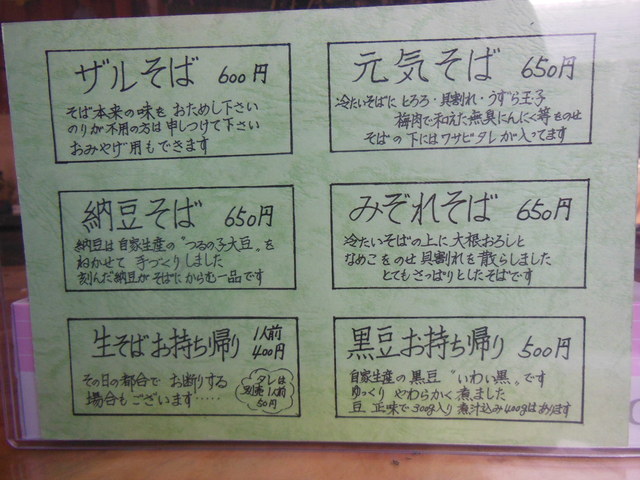 ザルそば 600円
そば本来の味を おためし下さい
のりが不用の方は申しつけて下さい
おみやげ用もできます
元気そば 650円
冷たいそばに とろろ・貝割れ・うずら玉子
梅肉で和えた無臭にんにく等をのせ
そばの下にはワサビタレが入ってます
納豆そば 650円
納豆は自家生産の〝つるの子大豆〟を
ねかせて 手づくりしました
刻んだ納豆がそばにからむ一品です
みぞれそば 650円
冷たいそばの上に大根おろしと
なめこをのせ貝割れを散らしました
とてもさっぱりとしたそばです
生そばお持ち帰り 1人前 400円
その日の都合で お断りする
場合もございます‥‥‥
タレは
別売 1人前
50円
黒豆お持ち帰り 500円
自家生産の黒豆〝いわい黒〟です
ゆっくり やわらかく煮ました
豆 正味で300g入り 煮汁込み400gはあります